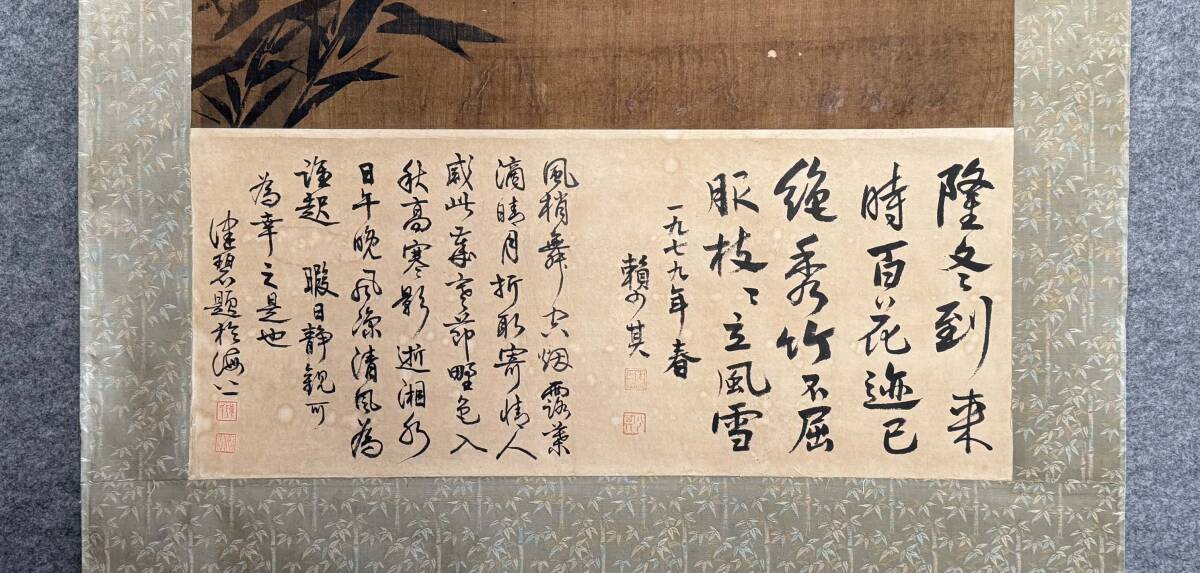 隆冬到来
時百花迹已
绝秀竹不屈
服枝〻立風雪
一九七九年春
賴少其
風梢舞空烟露葉
滴晴月折取寄情人
感此歲寒節野色入
秋高寒影逝湘水
日午晚風凉清風為
誰起 暇日静観可
為幸之是也
津碧題於海上